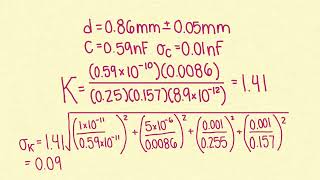 d = 0.86mm ± 0.05mm
C = 0.59nF σ_C = 0.01nF
K = (0.59×10⁻¹⁰)(0.0086) / (0.25)(0.157)(8.9×10⁻¹²) = 1.41
σ_K = 1.41 √((1×10⁻¹¹ / 0.59×10⁻¹¹)² + (5×10⁻⁶ / 0.0086)² + (0.001 / 0.255)² + (0.001 / 0.157)²)
= 0.09